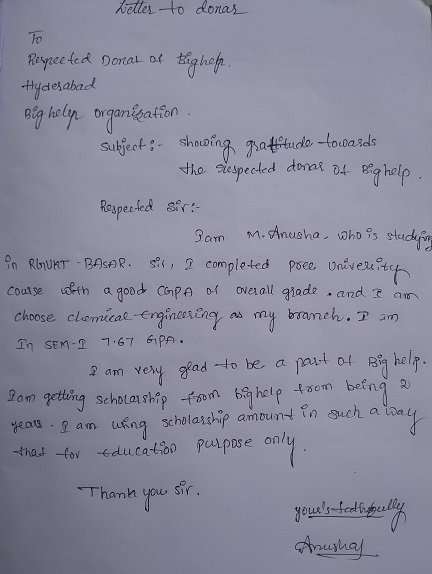 Letter to donar
To
Respected Donar of Bighelp.
Hyderabad
Big help organisation.
Subject:- showing gratitude towards
the respected donar of Big help.
Respected Sir:-
I am M. Anusha. who is studying
in RGUKT - BASAR. Sir, I completed pree University
course with a good CGPA of overall grade. and I am
choose chemical engineering as my branch. I am
In SEM-I 7.67 GPA.
I am very glad to be a part of Big help.
I am getting scholarship from bighelp from being 2
years. I am using scholarship amount in such a way
that for education purpose only.
Thank you sir.
your's faithfully
Anusha